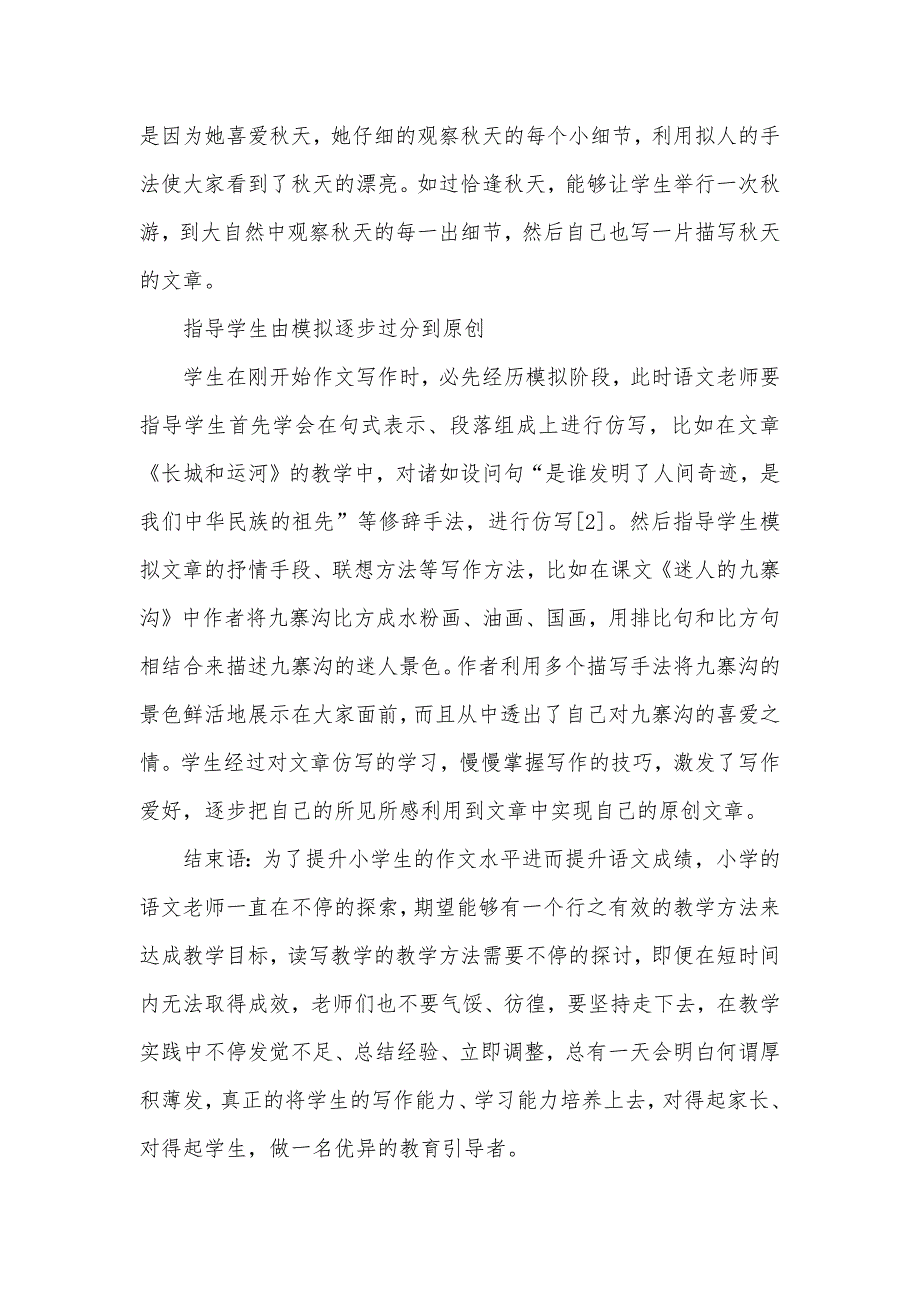 是因为她喜爱秋天，她仔细的观察秋天的每个小细节，利用拟人的手
法使大家看到了秋天的漂亮。如过恰逢秋天，能够让学生举行一次秋
游，到大自然中观察秋天的每一出细节，然后自己也写一片描写秋天
的文章。
指导学生由模拟逐步过分到原创
学生在刚开始作文写作时，必先经历模拟阶段，此时语文老师要
指导学生首先学会在句式表示、段落组成上进行仿写，比如在文章
《长城和运河》的教学中，对诸如设问句“是谁发明了人间奇迹，是
我们中华民族的祖先”等修辞手法，进行仿写[2]。然后指导学生模
拟文章的抒情手段、联想方法等写作方法，比如在课文《迷人的九寨
沟》中作者将九寨沟比方成水粉画、油画、国画，用排比句和比方句
相结合来描述九寨沟的迷人景色。作者利用多个描写手法将九寨沟的
景色鲜活地展示在大家面前，而且从中透出了自己对九寨沟的喜爱之
情。学生经过对文章仿写的学习，慢慢掌握写作的技巧，激发了写作
爱好，逐步把自己的所见所感利用到文章中实现自己的原创文章。
结束语：为了提升小学生的作文水平进而提升语文成绩，小学的
语文老师一直在不停的探索，期望能够有一个行之有效的教学方法来
达成教学目标，读写教学的教学方法需要不停的探讨，即便在短时间
内无法取得成效，老师们也不要气馁、彷徨，要坚持走下去，在教学
实践中不停发觉不足、总结经验、立即调整，总有一天会明白何谓厚
积薄发，真正的将学生的写作能力、学习能力培养上去，对得起家长、
对得起学生，做一名优异的教育引导者。